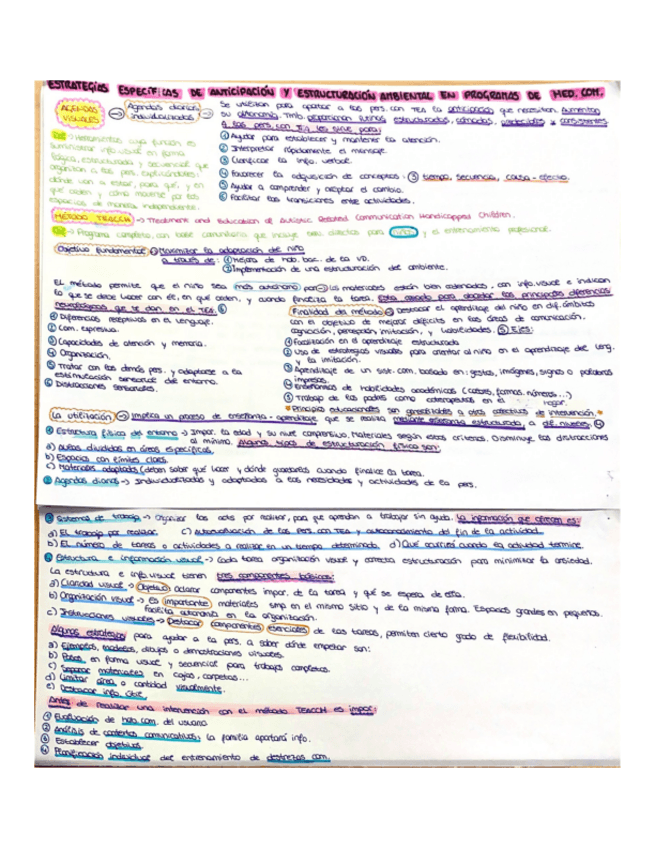 ESTRATEGIAS ESPECÍFICAS DE ANTICIPACIÓN Y ESTRUCTURACIÓN AMBIENTAL EN PROGRAMAS DE MED. COM.
AGENDAS VISUALES → Agendas diarias individualizadas →
Se utilizan para aportar a las pers. con TEA la anticipación que necesitan. Aumentan
su autonomía. Tmb. proporcionan rutinas estructuradas, cómodas, predecibles y consistentes.
A las pers. con TEA les sirve para:
① Ayudar para establecer y mantener la atención.
② Interpretar rápidamente el mensaje.
③ Clarificar la info. verbal.
④ Favorecer la adquisición de conceptos: ③ tiempo, secuencia, causa-efecto.
⑤ Ayudar a comprender y aceptar el cambio.
⑥ Facilitar las transiciones entre actividades.
Herramientas cuya función es
suministrar info visual en forma
lógica, estructurada y secuencial que
organizan a las pers. explicándoles:
dónde van a estar, para qué, y en
qué orden y cómo moverse por los
espacios de manera independiente.
MÉTODO TEACCH → Treatment and Education of Autistic Related Communication Handicapped Children.
→ Programa completo, con base comunitaria que incluye serv. directos para y el entrenamiento profesional.
Objetivo fundamental Maximizar la adaptación del niño
a través de: ① Mejora de hab. bac. de la VD.
② Implementación de una estructuración del ambiente.
EL método permite que el niño sea más autónomo por → los materiales están bien ordenados, con info. visual e indican
lo que se debe hacer con él, en qué orden, y cuando finaliza la tarea. Esta creado para abordar las principales diferencias
neurológicas que se dan en el TEA: ⑥
① Diferencias receptivas en el lenguaje.
② Com. expresiva.
③ Capacidades de atención y memoria.
④ Organización.
⑤ Tratar con los demás pers. y adaptarse a la
estimulación sensorial del entorno.
⑥ Distracciones sensoriales.
Finalidad del método → Destacar el aprendizaje del niño en dif. ámbitos
con el objetivo de mejorar déficits en las áreas de comunicación,
cognición, percepción imitación, y habilidades. ⑤ Ejes:
① Facilitación en el aprendizaje estructurada
② Uso de estrategias visuales para orientar al niño en el aprendizaje del leng.
y la imitación.
③ Aprendizaje de un sist. com. basado en: gestos, imágenes, signos o palabras
impresas.
④ Enseñanzas de habilidades académicas (colores, formas, números...)
⑤ Trabajo de los padres como coterapeutas en el hogar.
*Principios educacionales son generalizables a otros colectivos de intervención.*
La utilización → Implica un proceso de enseñanza-aprendizaje que se realiza mediante enseñanza estructurada a dif. niveles ④
① Estructura física del entorno → Impor. la edad y su nivel comprensivo. Materiales según estos criterios. Disminuye las distracciones
al mínimo. Algunos tipos de estructuración física son:
a) Aulas divididas en áreas específicas.
b) Espacios con límites claros.
c) Materiales adaptados (deben saber qué hacer y dónde guardarlos cuando finalice la tarea.
② Agendas diarias → Individualizadas y adaptadas a las necesidades y actividades de la pers.
③ Sistemas de trabajo → Organizar las acts por realizar, para que aprendan a trabajar sin ayuda. La información que ofrecen es:
a) El trabajo por realizar. c) Autoevaluación de las pers. con TEA y autocontrolamiento del fin de la actividad.
b) El número de tareas o actividades a realizar en un tiempo determinado. d) Qué ocurrirá cuando la actividad termine.
④ Estructura e información visual → Cada tarea organización visual y correcta estructuración para minimizar la ansiedad.
La estructura e info. visual tienen tres componentes básicos:
a) Claridad visual → Objetivo aclarar componentes impor. de la tarea y qué se espera de ella.
b) Organización visual → es importante materiales smp en el mismo sitio y de la misma forma. Espacios grandes en pequeños.
facilita autonomía en la organización.
c) Instrucciones visuales → Destacar componentes esenciales de las tareas, permiten cierto grado de flexibilidad.
Algunas estrategias para ayudar a la pers. a saber dónde empezar son:
a) Ejemplos, modelos, dibujos o demostraciones visuales.
b) Pasos, en forma visual y secuencial para trabajos completos.
c) Separar materiales en cajas, carpetas...
d) Limitar área o cantidad visualmente.
e) Destacar info. útil.
Antes de realizar una intervención con el método TEACCH es impor:
① Evaluación de hab. com. del usuario.
② Análisis de contextos comunicativos: la familia aportará info.
③ Establecer objetivos.
④ Planificación individual del entrenamiento de destrezas com.